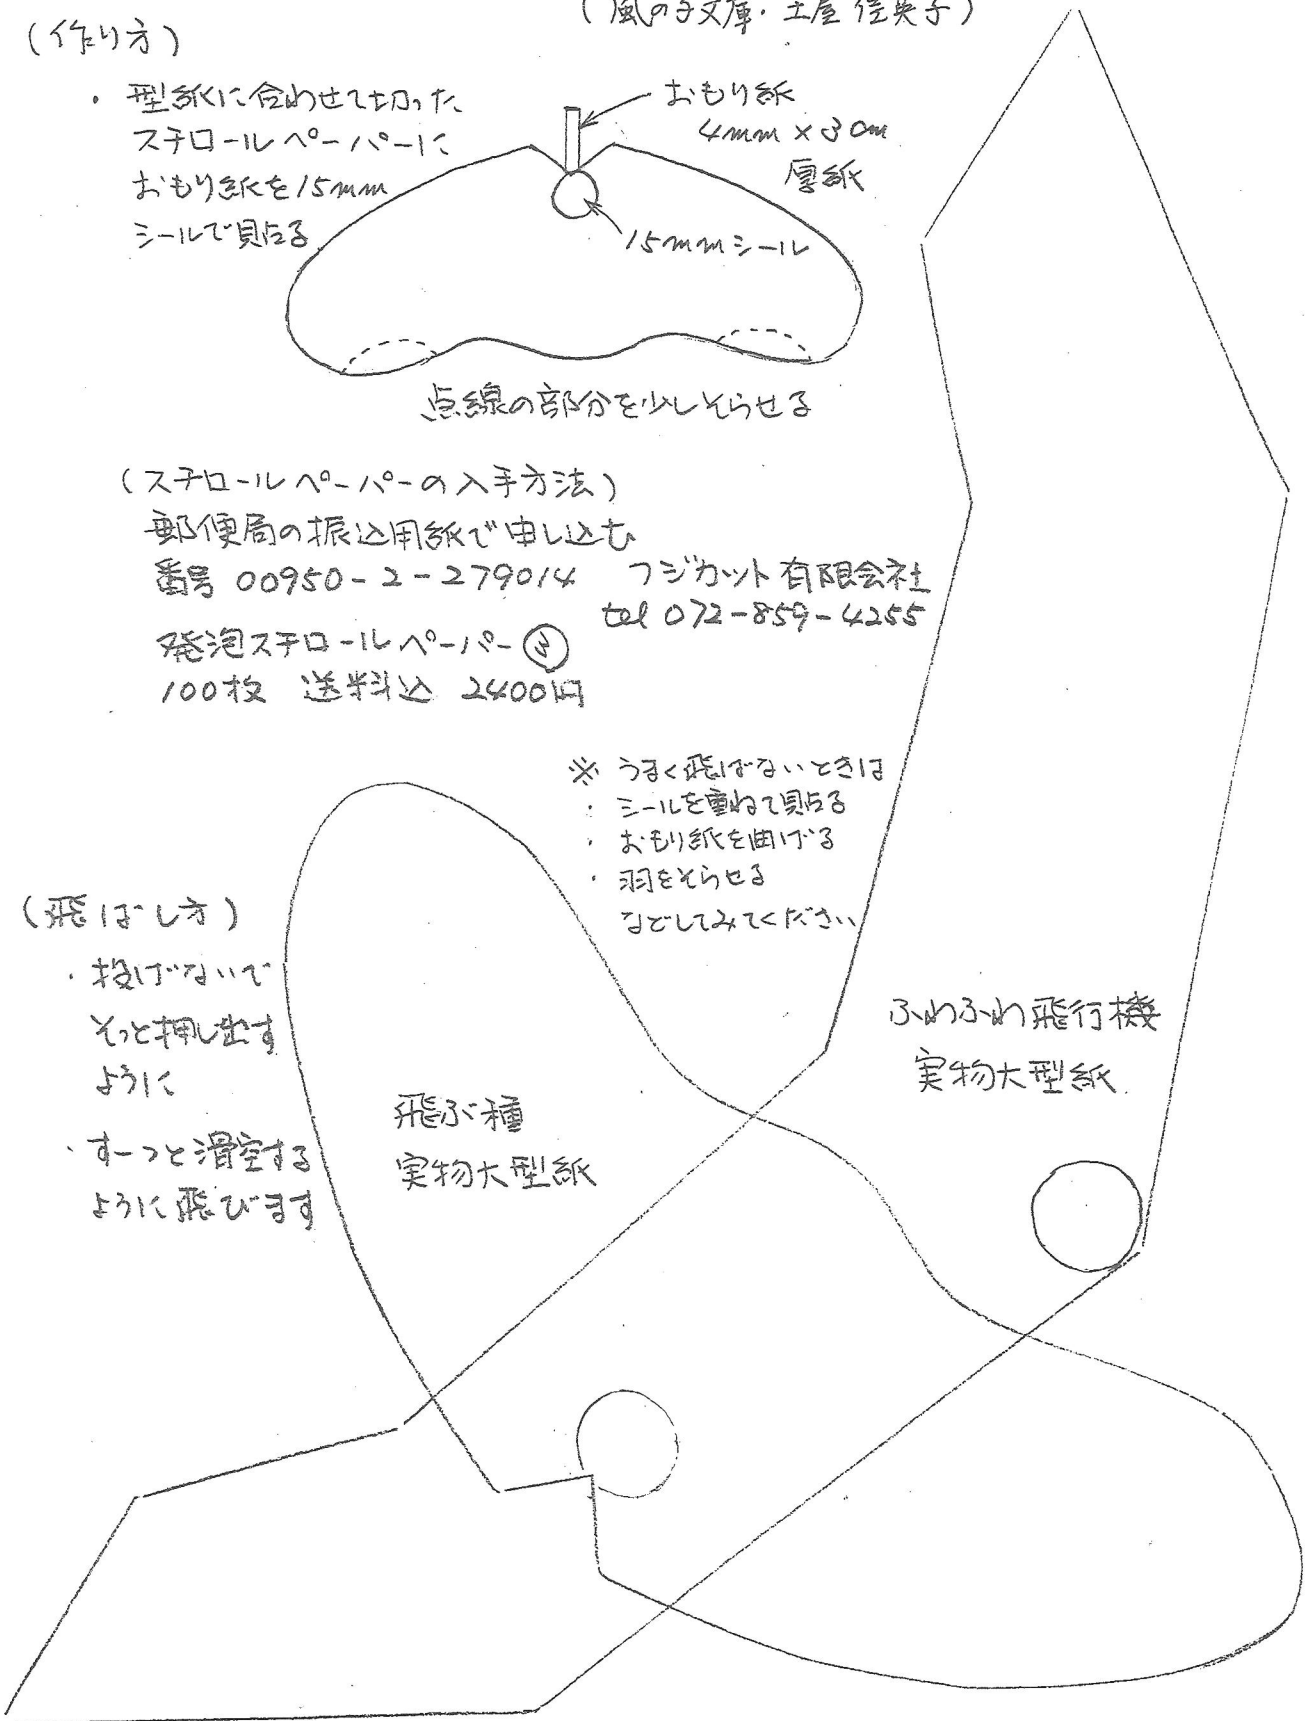 (風の子文庫・土屋佳英子)
(作り方)
・型紙に合わせて切った
スチロールペーパーに
おもり紙を15mm
シールで貼る
おもり紙
4mm×3cm
厚紙
15mmシール
点線の部分を少しそらせる
(スチロールペーパーの入手方法)
郵便局の振込用紙で申し込む
番号 00950-2-279014 フジカット有限会社
tel 072-859-4255
発泡スチロールペーパー③
100枚 送料込 2400円
※ うまく飛ばないときは
・シールを重ねて貼る
・おもり紙を曲げる
・羽をそらせる
などしてみてください
(飛ばし方)
・投げないで
そっと押し出す
ように
・すーっと滑空する
ように飛びます
飛ぶ種
実物大型紙
ふわふわ飛行機
実物大型紙